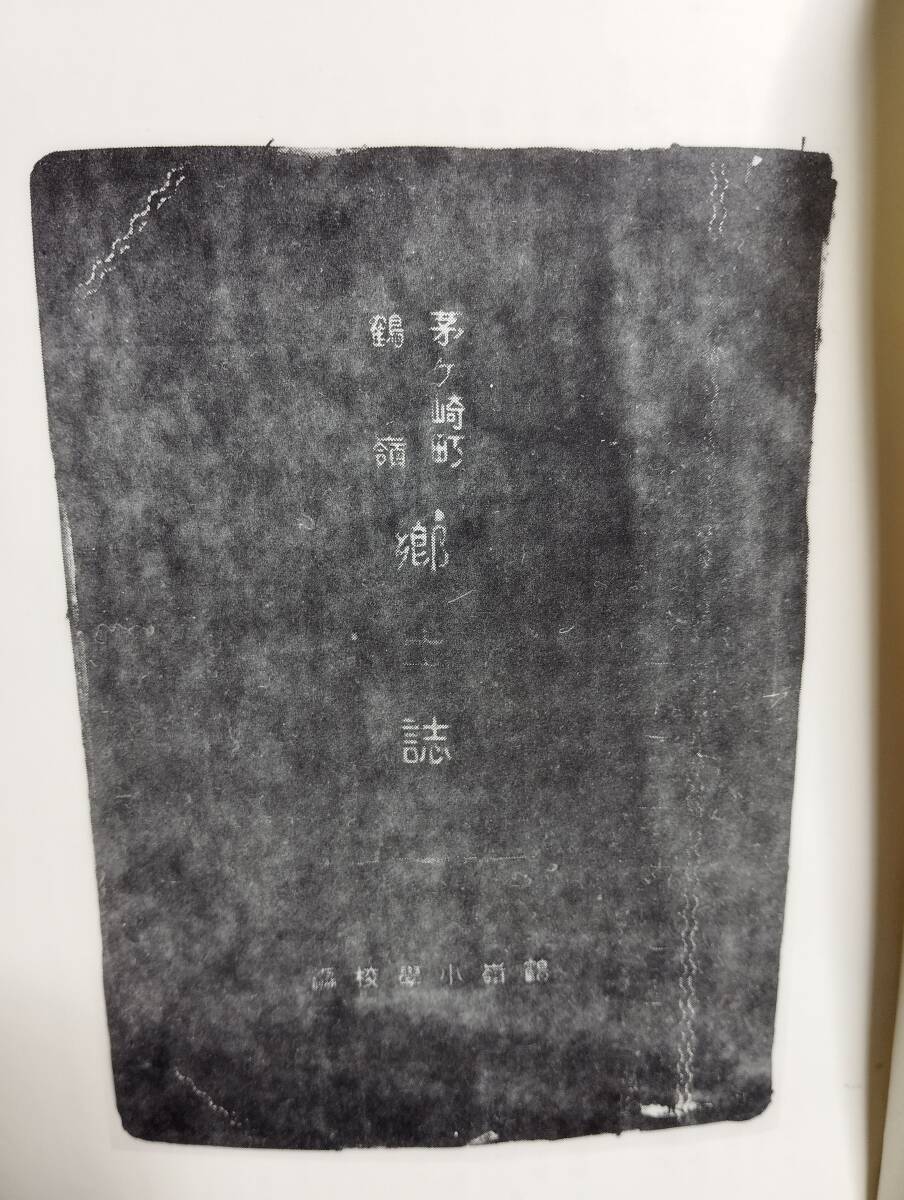 茅ヶ崎町
鶴嶺
郷土誌
鶴嶺小學校